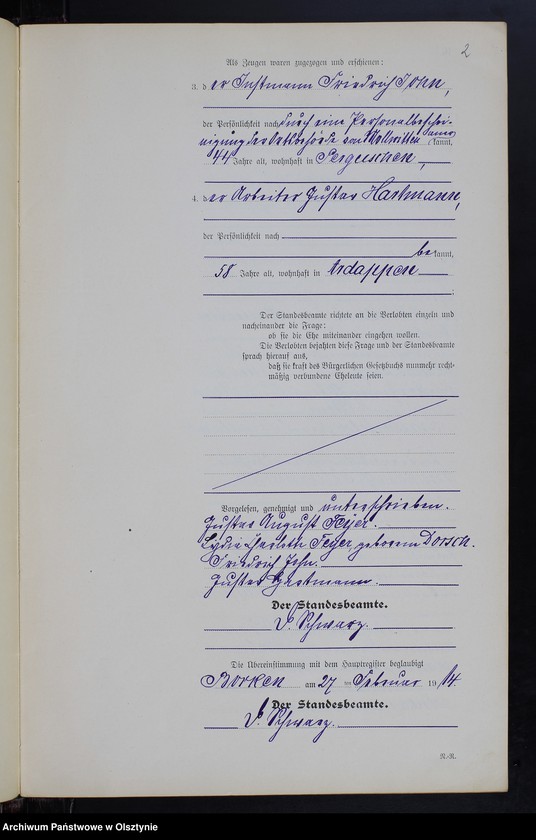 2
Als Zeugen waren zugezogen und erschienen:
3. der Instmann Friedrich John,
der Persönlichkeit nach durch eine Personalbeschei-
nigung der Ortsbehörde von Wollwitten aner
kannt,
44 Jahre alt, wohnhaft in Perguschen,
4. der Arbeiter Gustav Hartmann,
der Persönlichkeit nach
be kannt,
58 Jahre alt, wohnhaft in Ardappen
;
Der Standesbeamte richtete an die Verlobten einzeln und
nacheinander die Frage:
ob sie die Ehe miteinander eingehen wollen.
Die Verlobten bejahten diese Frage und der Standesbeamte
sprach hierauf aus,
daß sie kraft des Bürgerlichen Gesetzbuchs nunmehr recht-
mäßig verbundene Eheleute seien.
Vorgelesen, genehmigt und unterschrieben.
Gustav August Feyer.
Lydia Charlotte Feyer geborene Dorsch.
Friedrich John.
Gustav Hartmann.
Der Standesbeamte.
Schwarz.
Die Übereinstimmung mit dem Hauptregister beglaubigt
Borken am 27 ten Februar 1914.
Der Standesbeamte.
Schwarz.
N.-R.
Archiwum Państwowe w Olsztynie